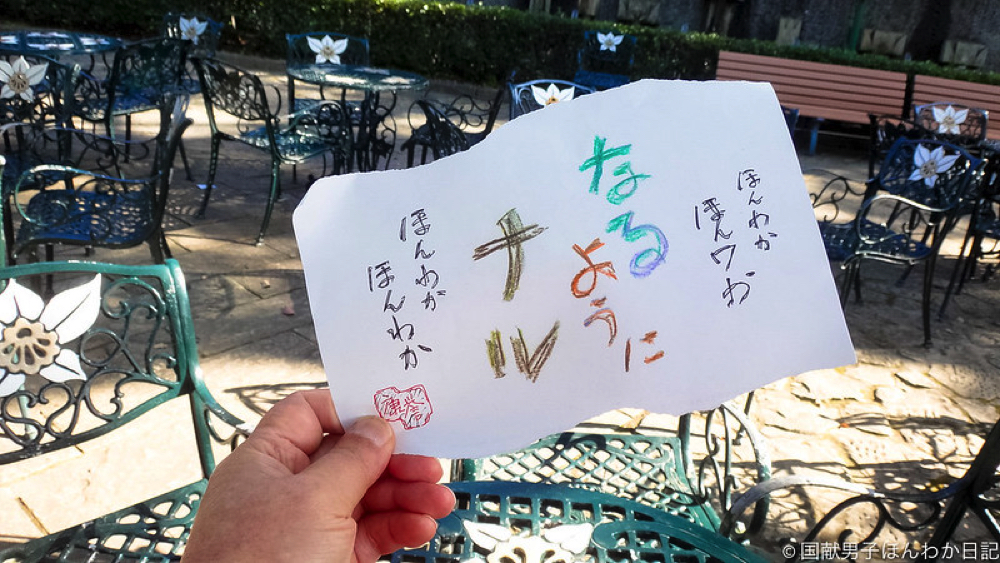 ほんわか
ほんワわ
なる
ように
ナル
ほんわか
ほんわか
© 国献男子ほんわか日記